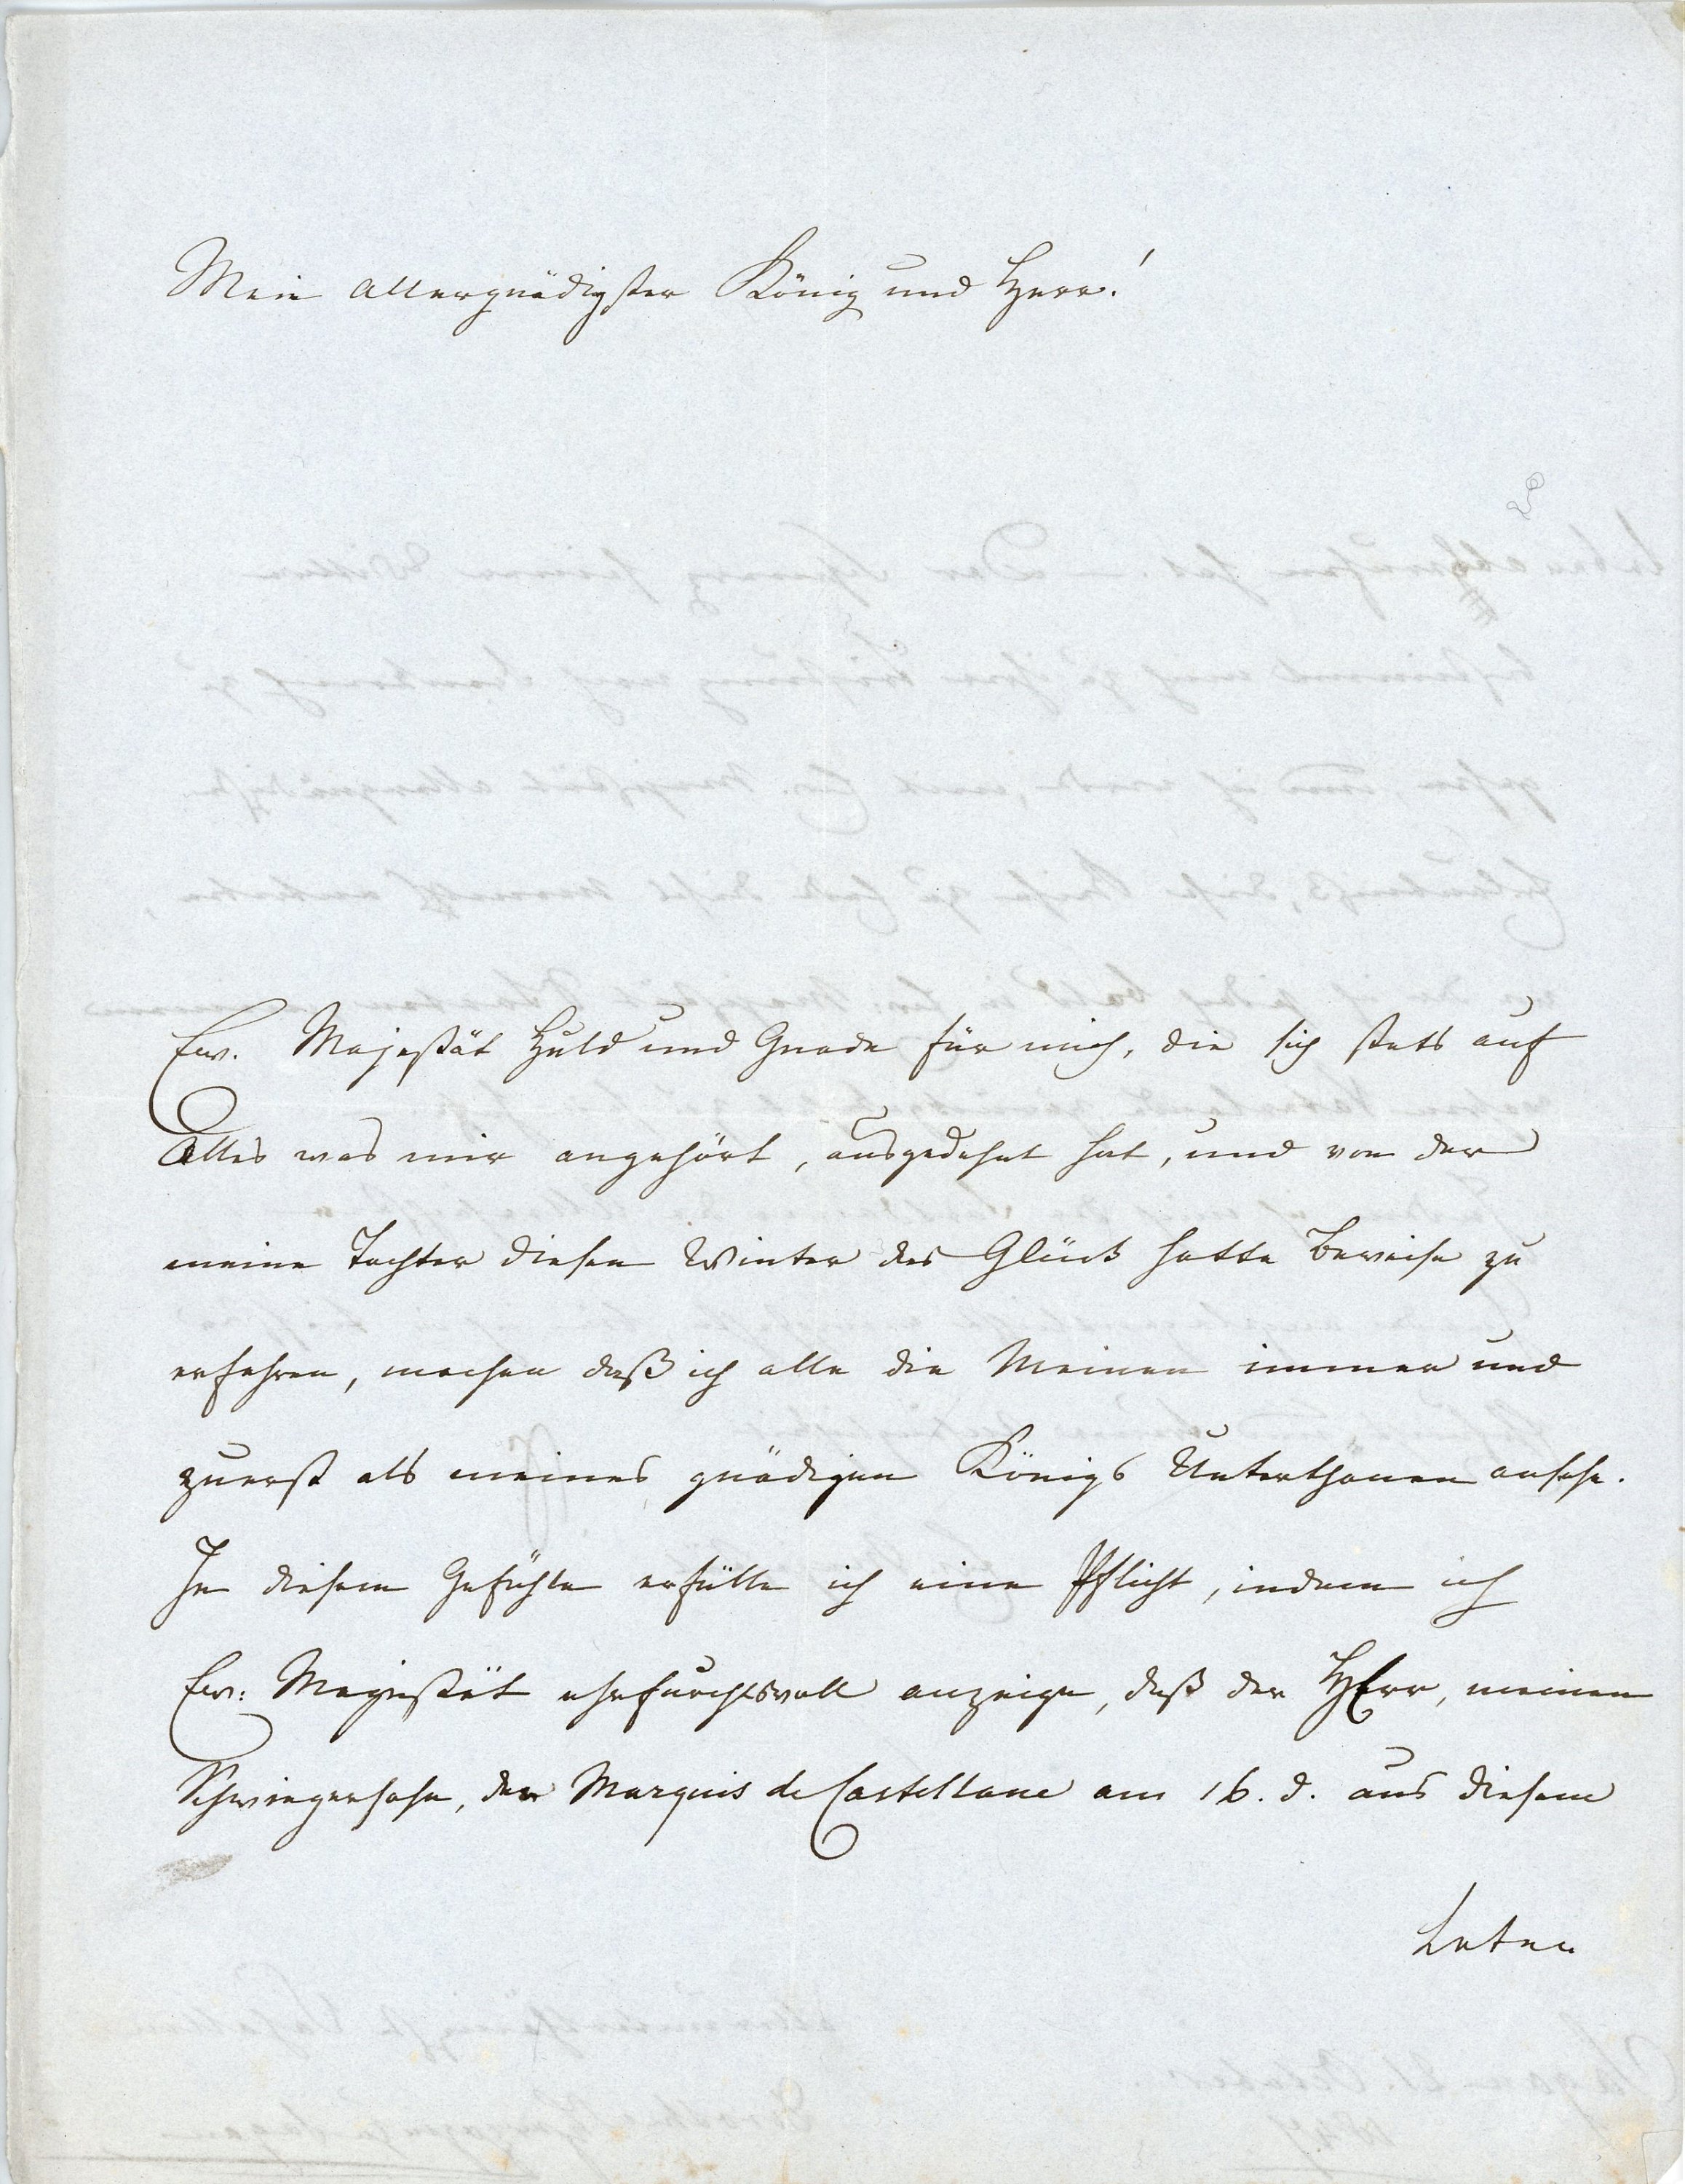 Mein Allergnädigster König und Herr!
Ew. Majestät Huld und Gnade für mich, die sich stets auf
Alles was mir angehört, ausgedehnt hat, und von der
meine Tochter diesen Winter das Glück hatte Beweise zu
erfahren, machen daß ich alle die Meinen immer und
zuerst als meines gnädigen Königs Unterthanen ansehe.
In diesem Gefühle erfülle ich eine Pflicht, indem ich
Ew: Majestät ehrfurchtsvoll anzeige, daß der HErr, meinen
Schwiegersohn, den Marquis de Castellane am 16. d. aus diesem
Leben